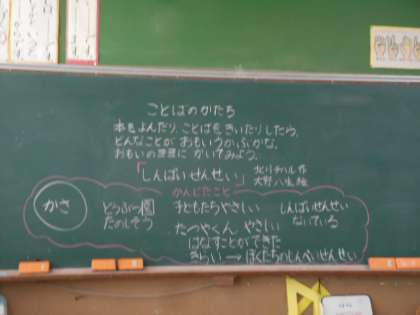 ことばのかたち
本をよんだり、ことばをきいたりしたら、
どんなことが おもいうかぶかな。
おもいのままに かいてみよう。
「しんぱいせんせい」
北川チハル 作
大野八生 絵
かんじたこと
かさ
どうぶつ園
たのしそう
子どもたちやさしい
しんぱいせんせい
ないている
たつやくん やさしい
はなすことができた
きらい → ぼくたちのしんぱいせんせい